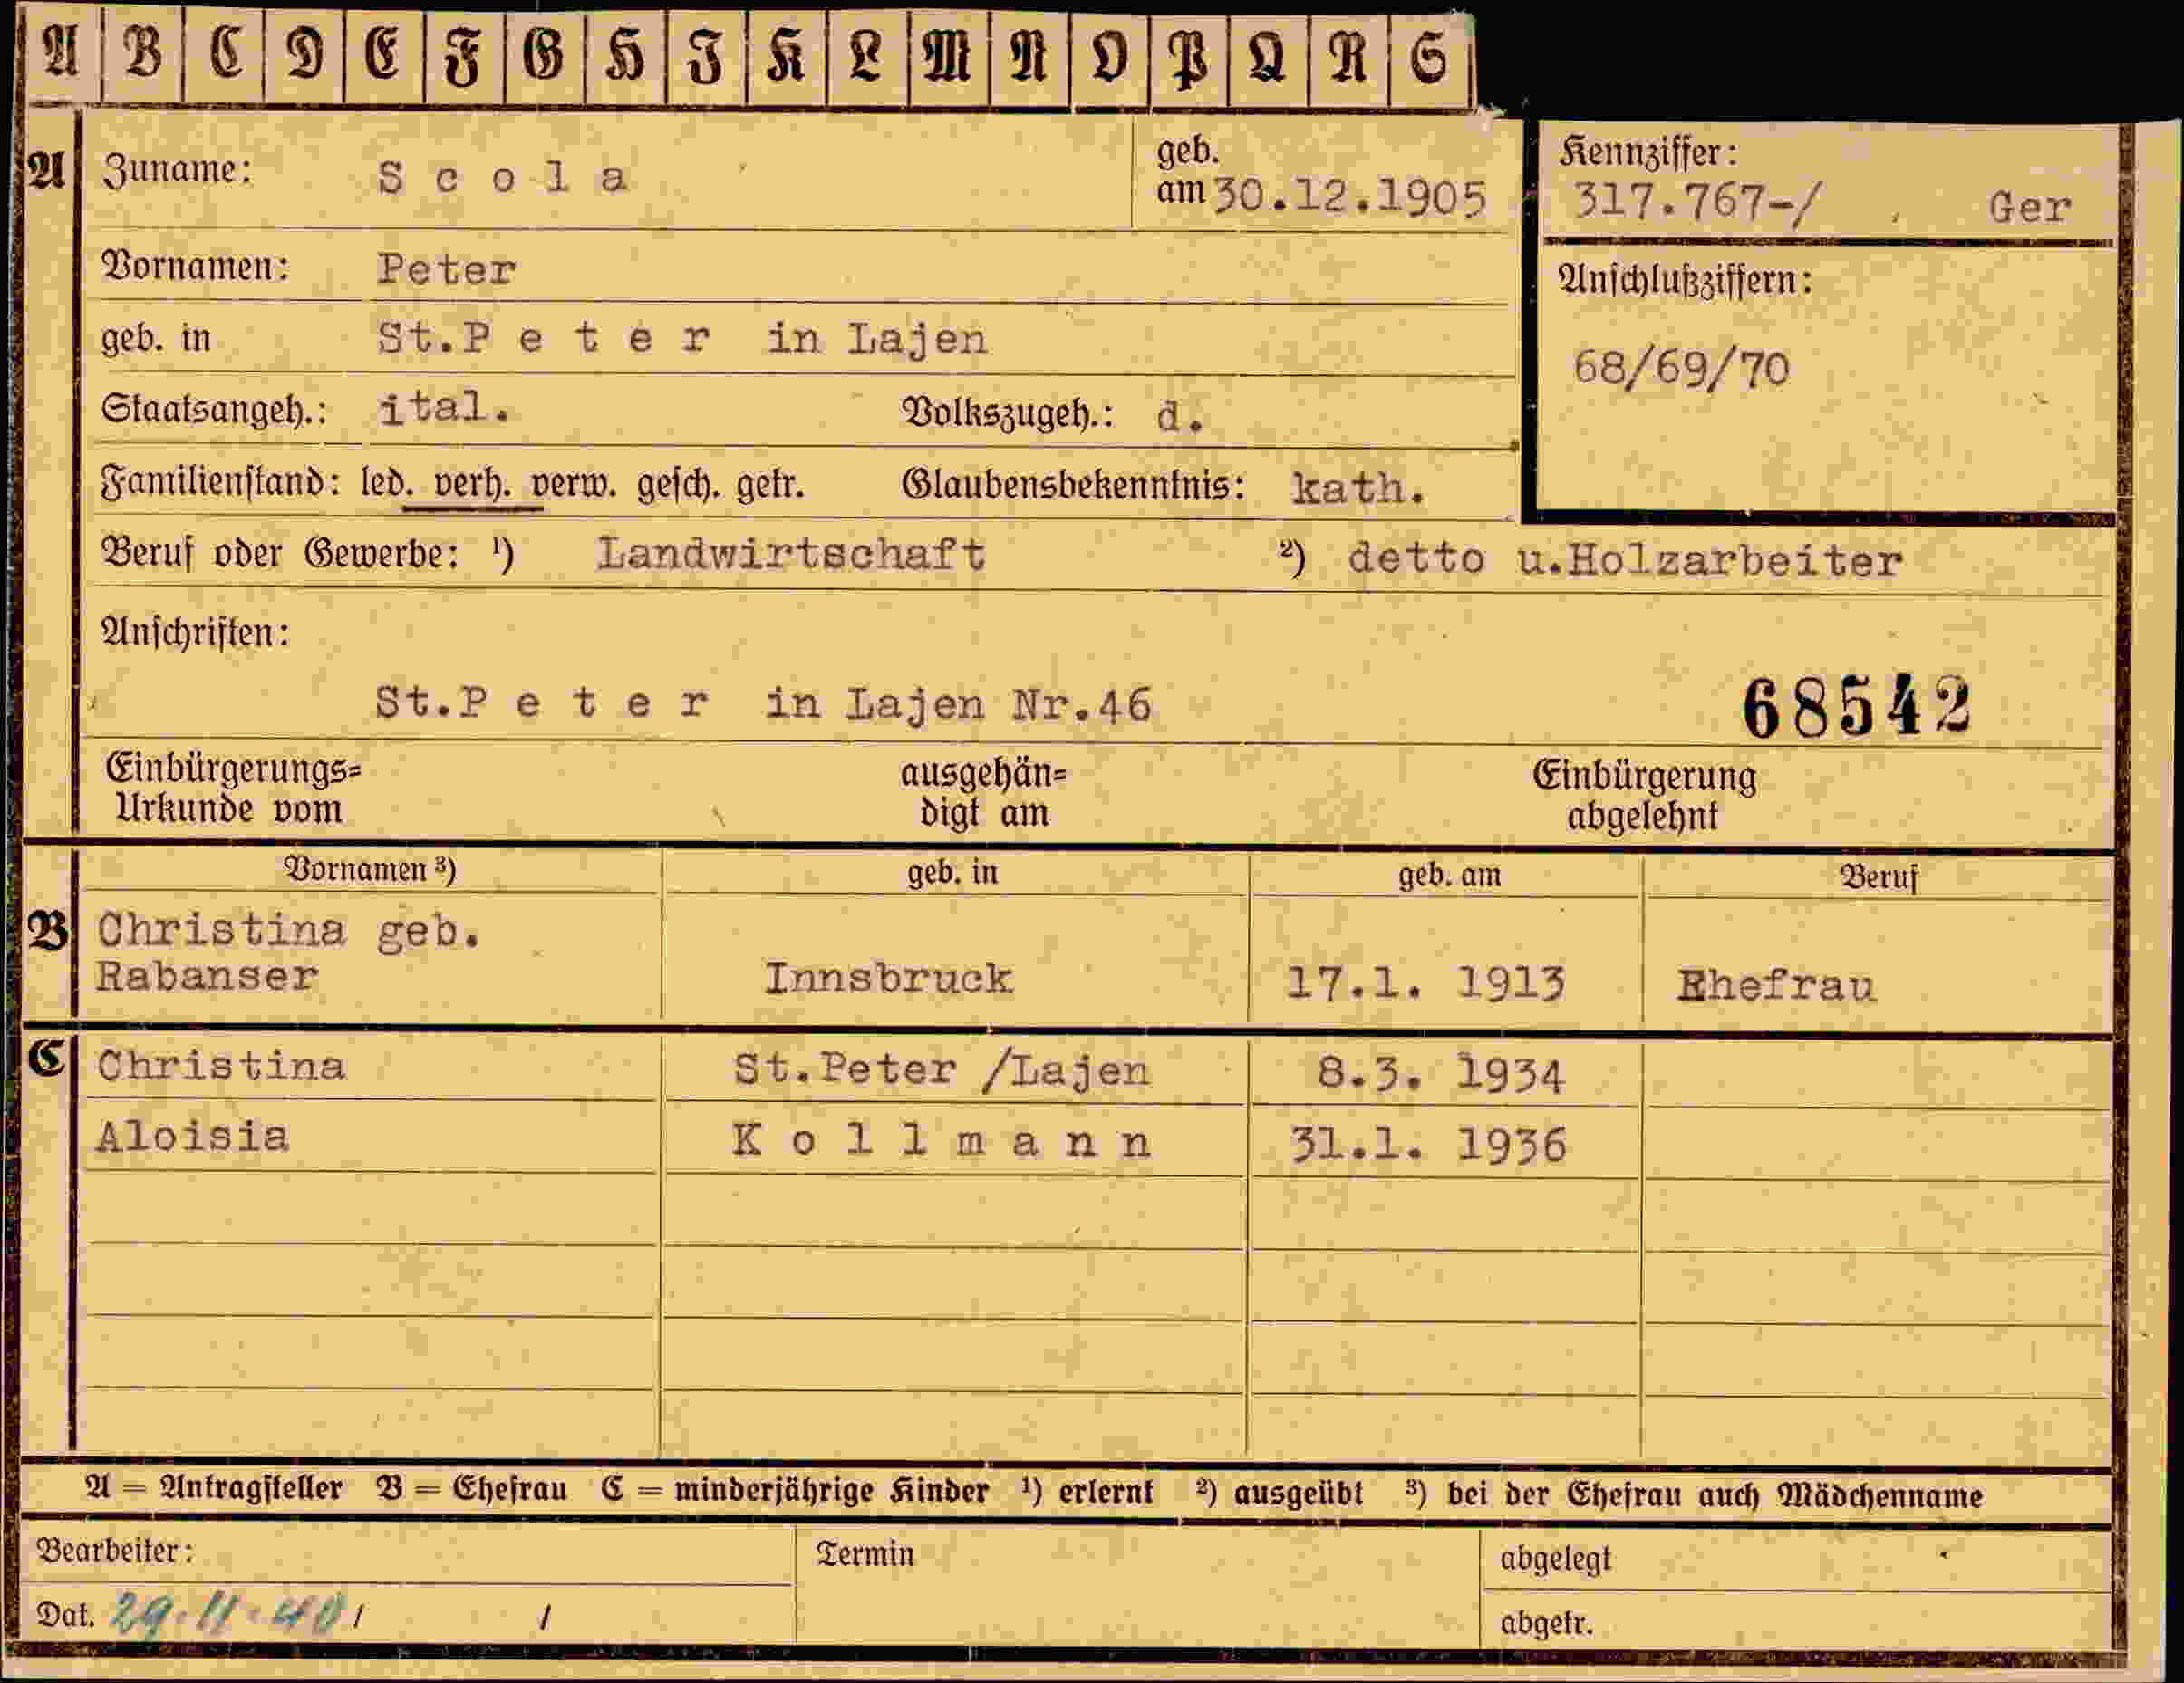 A B C D E F G H I K L M N O P Q R S
A Zuname: S c o l a geb. am 30.12.1905
Kennziffer:
317.767-/ Ger
Vornamen: Peter
Anschlußziffern:
geb. in St.P e t e r in Lajen
68/69/70
Staatsangeh.: ital. Volkszugeh.: d.
Familienstand: led. verh. verw. gesch. getr. Glaubensbekenntnis: kath.
Beruf oder Gewerbe: ¹) Landwirtschaft ²) detto u.Holzarbeiter
Anschriften:
St.P e t e r in Lajen Nr.46 68542
Einbürgerungs= ausgehän= Einbürgerung
Urkunde vom digt am abgelehnt
Vornamen ³) geb. in geb. am Beruf
B Christina geb.
Rabanser Innsbruck 17.1. 1913 Ehefrau
C Christina St.Peter /Lajen 8.3. 1934
Aloisia K o l l m a n n 31.1. 1936
A = Antragsteller B = Ehefrau C = minderjährige Kinder ¹) erlernt ²) ausgeübt ³) bei der Ehefrau auch Mädchenname
Bearbeiter: Termin abgelegt
Dat. 29.11.40 / / abgetr.